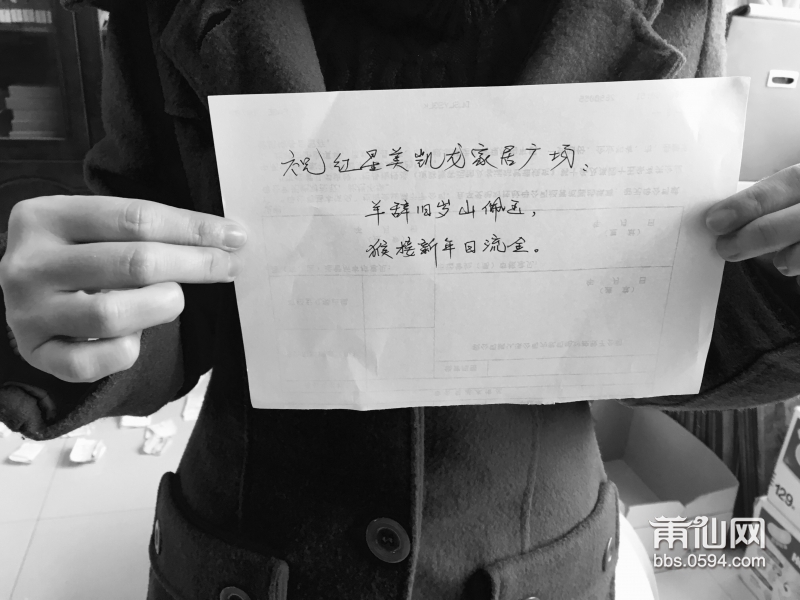 祝红星美凯龙家居广场、
羊辞旧岁山佩玉，
猴接新年日流金。
129
莆仙网
bbs.0594.com